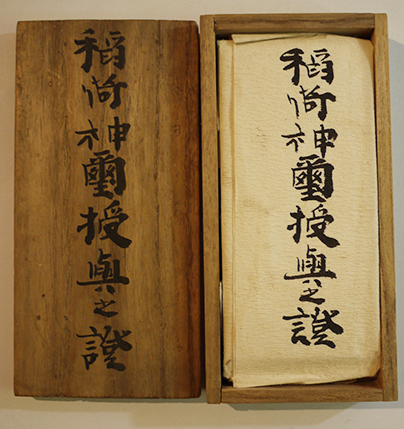 稻荷神璽授與之證
稻荷神璽授與之證